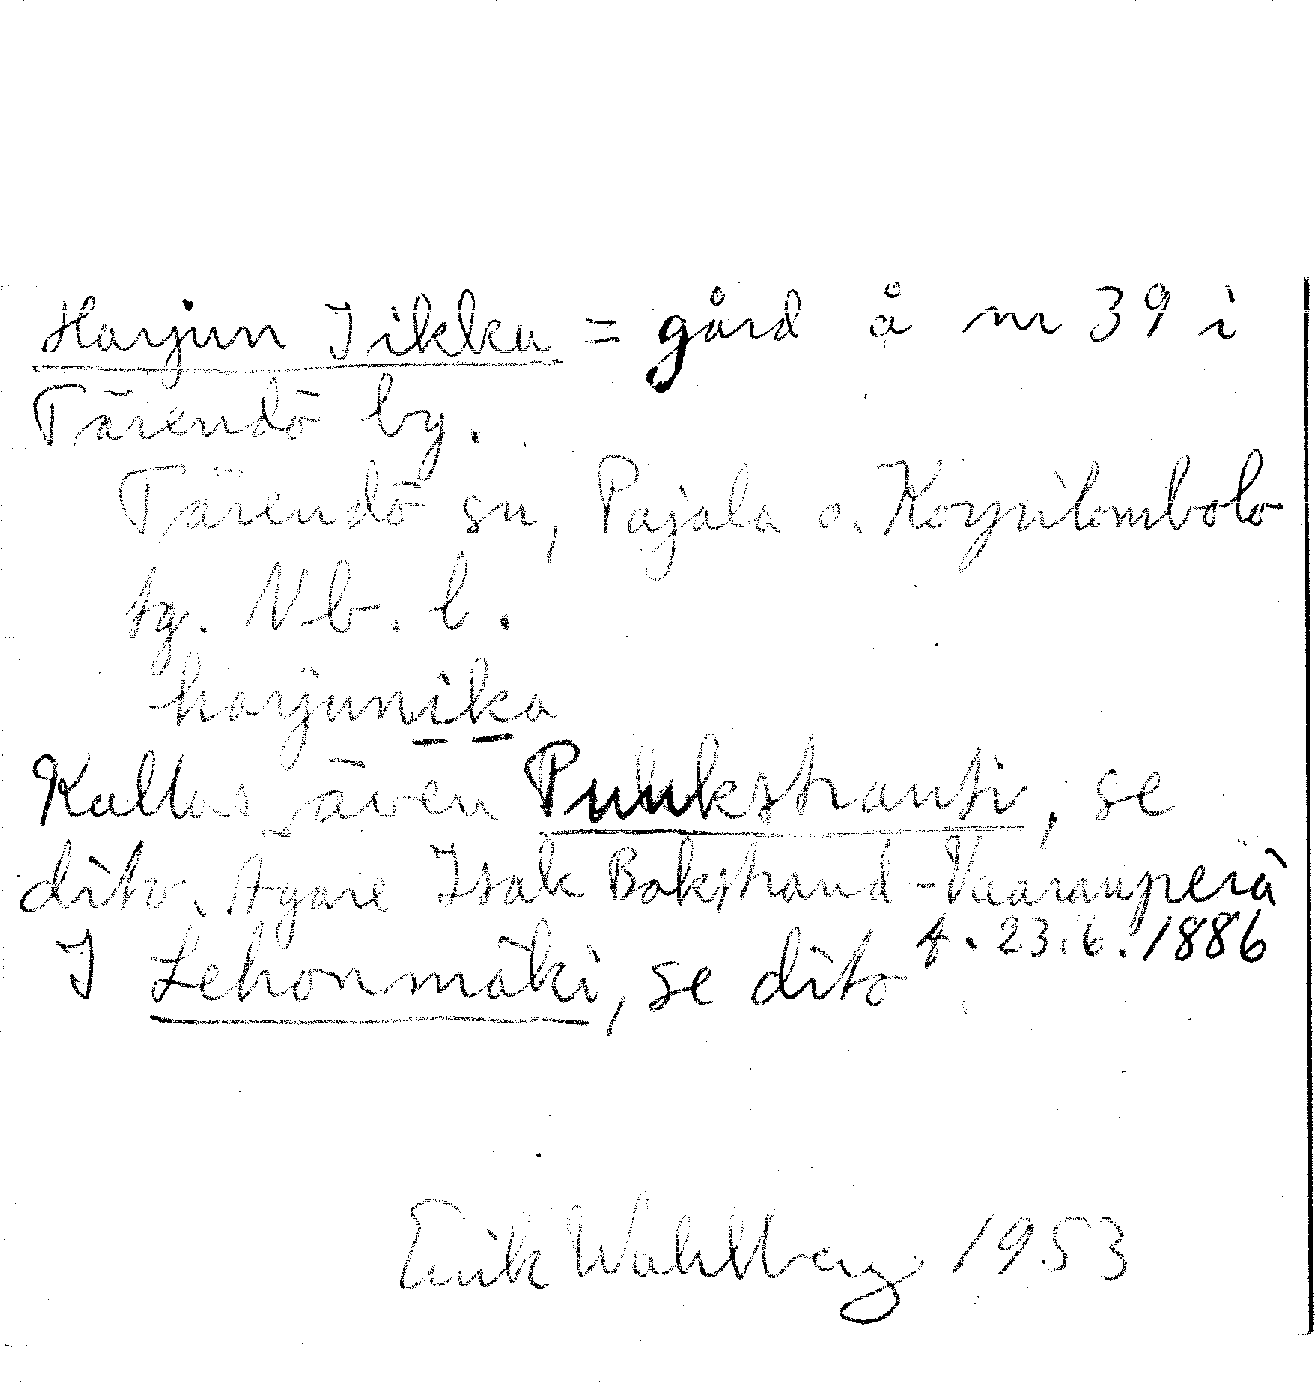 Harjun Iikka = gård å nr 39 i
Tärendö by.
Tärendö sn, Pajala o. Korpilombolo
tg. Nb. l.
harjunika
Kallas även Puukstranti, se
dito. Ägare Isak Bokstrand-Vaaranperä
f. 23.6.1886
I Lehonmäki, se dito
Erik Wahlberg 1953